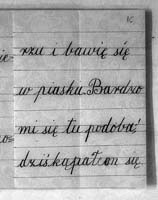 16
ie-
rzu i bawię się
w piasku. Bardzo
mi się tu podoba,
dziś kąpałem się